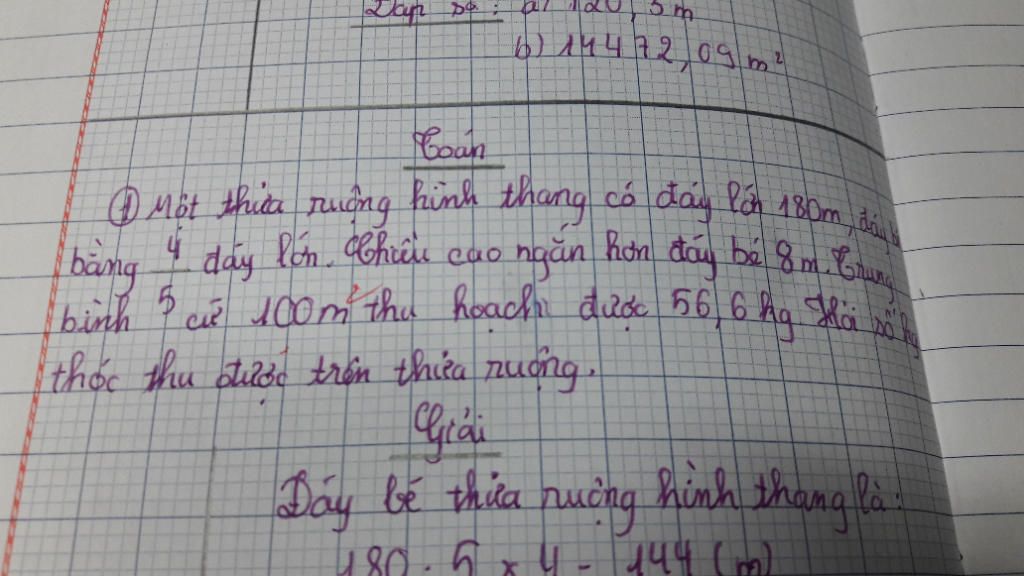 Đáp số: a) 120,3m
b) 14472,09 m²
Toán
① Một thửa ruộng hình thang có đáy lớn 180m, đáy bé
bằng 4/5 đáy lớn. Chiều cao ngắn hơn đáy bé 8m. Trung
bình cứ 100m² thu hoạch được 56,6 kg Hỏi số kg
thóc thu được trên thửa ruộng.
Giải
Đáy bé thửa ruộng hình thang là:
180 : 5 x 4 = 144 (m)